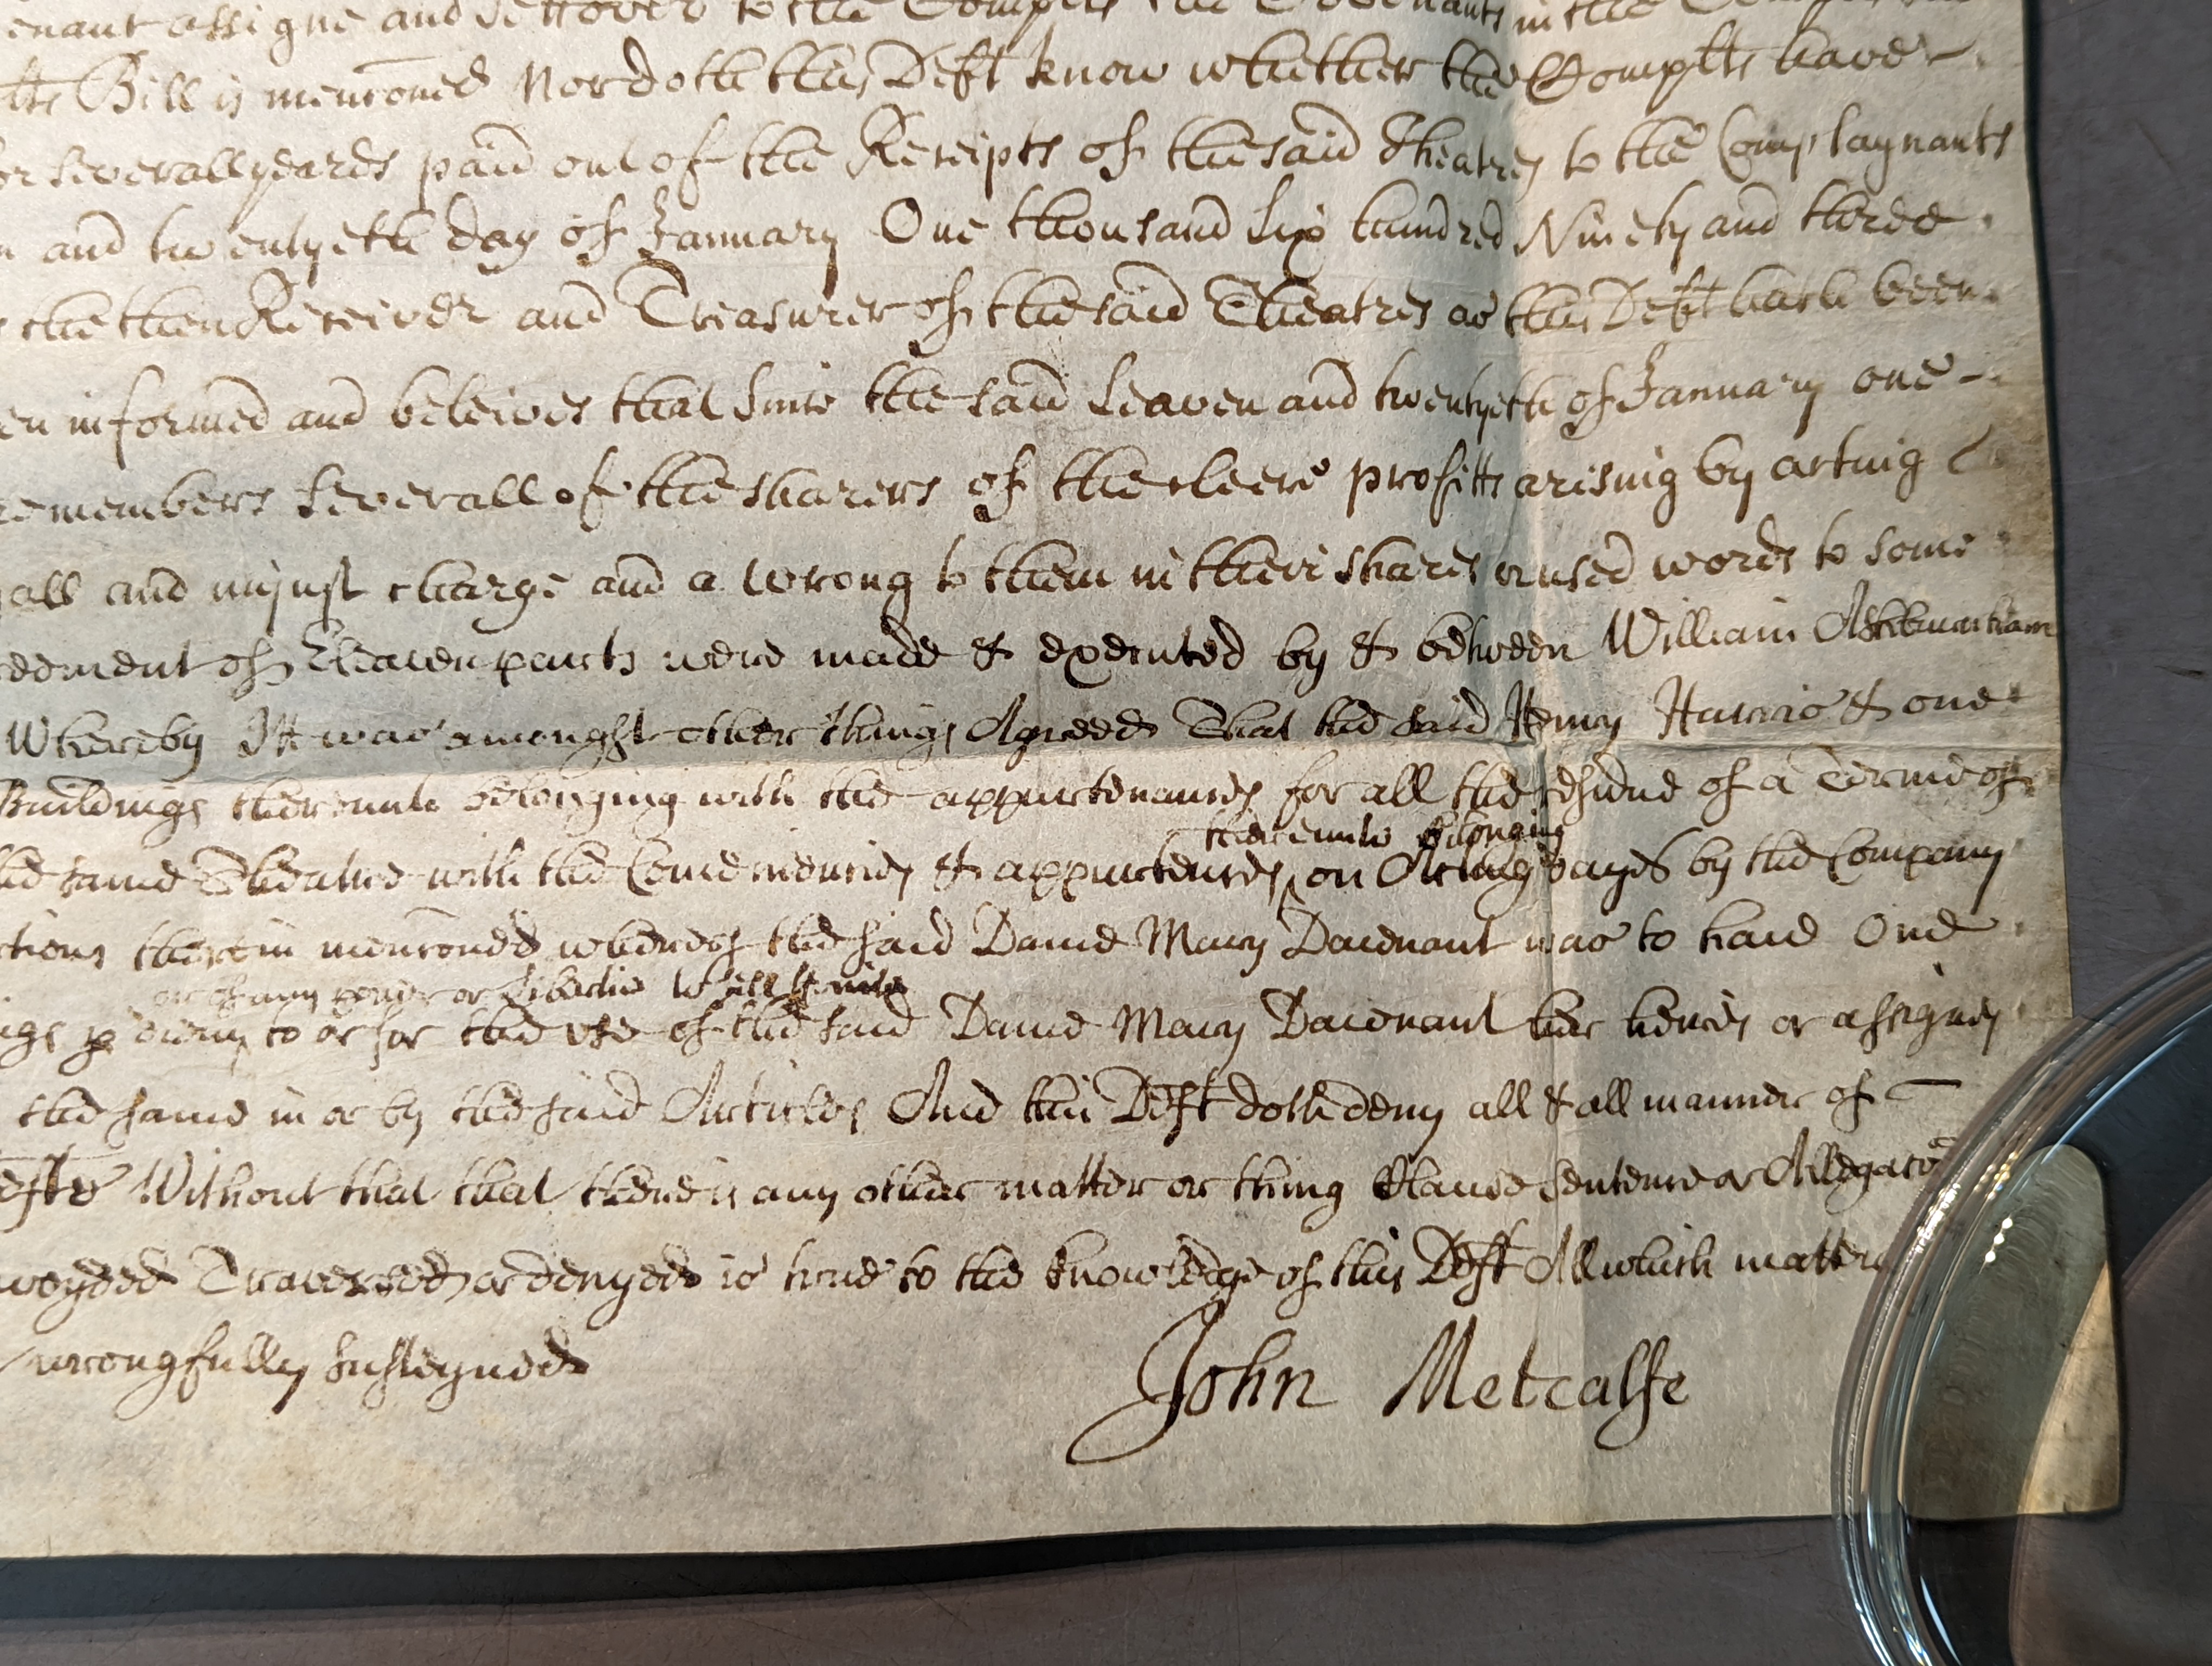 enant assigne and settover to the Complts the Covenants in the
tts Bill is menconed Nor doth this Deft know whether the Complts have
or severall yeares paid out of the Receipts of the said Theatres to the Complaynants
and twentyeth day of January One thousand Six hundred Ninety and three
the then Receiver and Treasurer of the said Theatres as this Deft hath been
en informed and beleives that Since the said Seaven and twentyeth of January one
remembers Severall of the sharers of the cleere profitts arising by acting
all and unjust charge and a wrong to them in their shares or used words to some
eement of Eleaven parts were made & executed by & between William Ashburnham
Whereby Itt was amongst other things Agreed That the said Henry Harris & one
Buildings thereunto belonging with the appurtenances for all the residue of a Terme of
thereunto belonging
the same Theatre with the Conveniencies & appurtences on Acting dayes by the Company
ctions therein menconed whereof the said Dame Mary Davenant was to have One
or of any power or
ngs p diem to or for the use of the said Dame Mary Davenant her heires or assignes
the same in or by the said Articles And this Deft doth deny all & all manner of
Without that that there is any other matter or thing Clause Sentence or Allegacon
voyded Traversed or denyed is true to the knowledge of this Deft All which matters
wrongfully susteyned
John Metcalfe